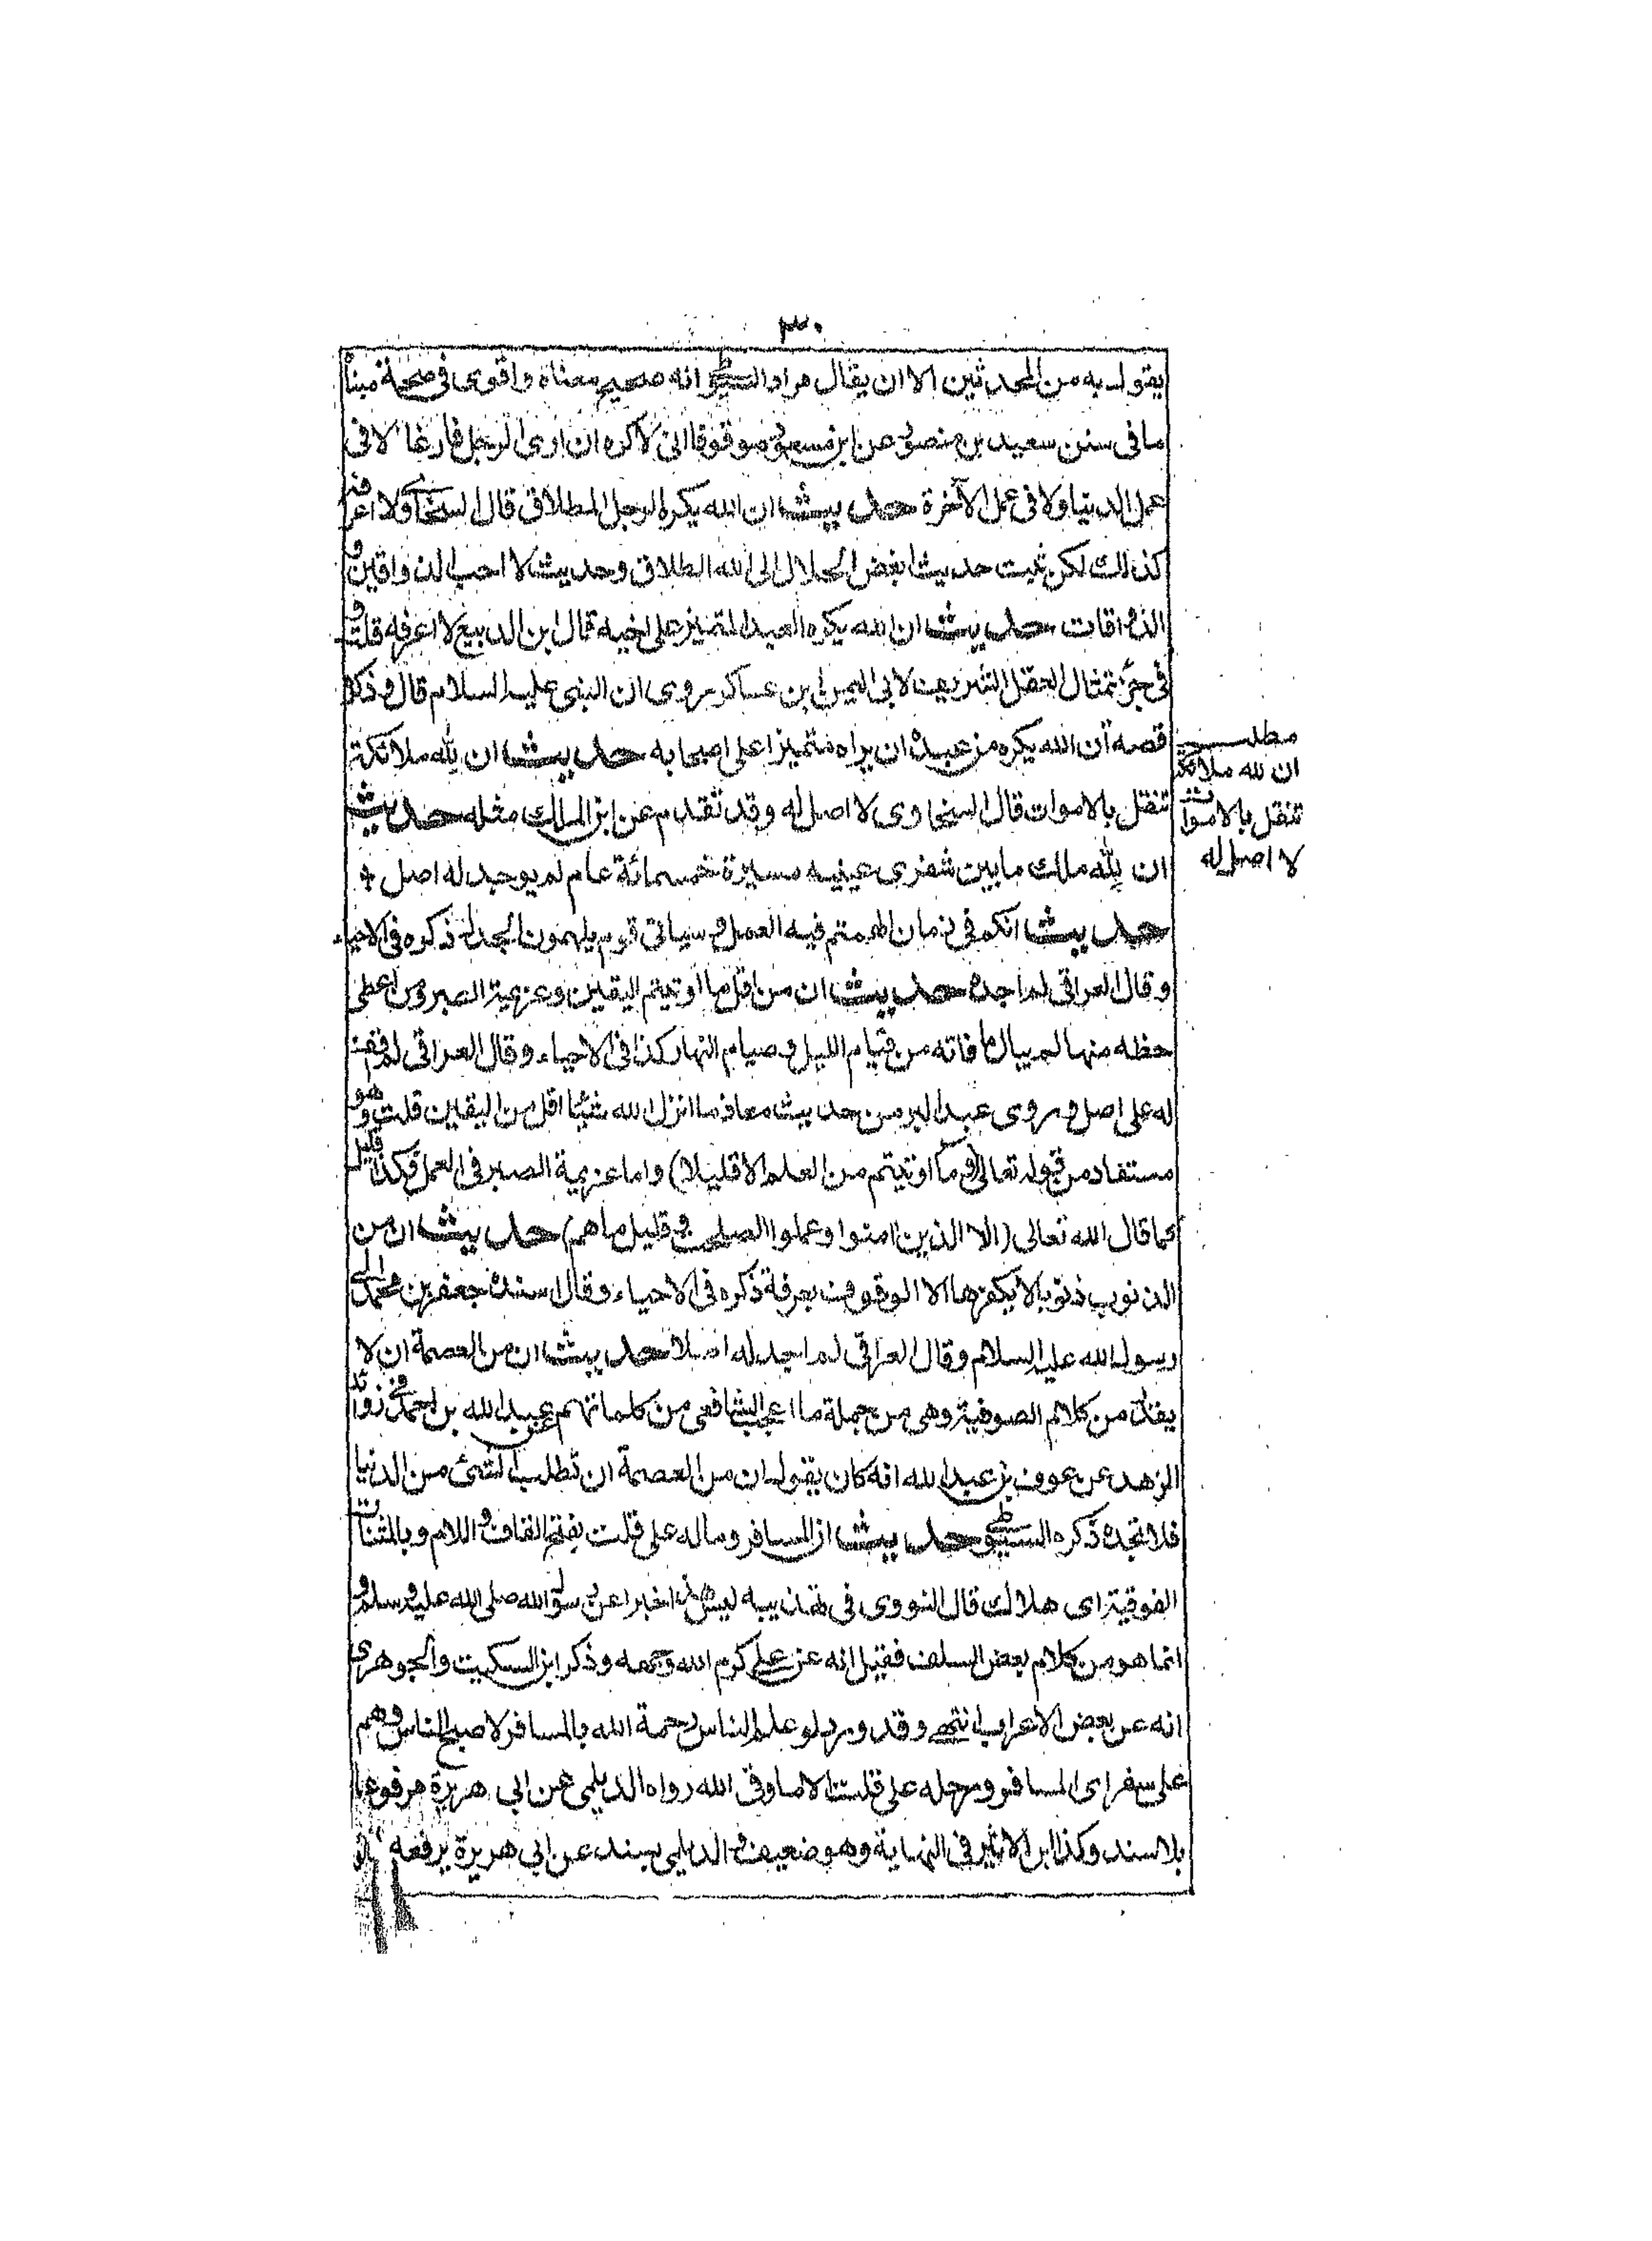 ٣٠
يقول به من المحدثين الا ان يقال مراد السيوطي انه صحيح معناه واقوى في صحة مبناه
ما في سنن سعيد بن منصور عن ابن مسعود موقوفا اني لاكره ان ارى الرجل فارغا لا في
عمل الدنيا ولا في عمل الآخرة حديث ان الله يكره الرجل المطلاق قال السخاوي ولا اعرفه
كذلك لكن ثبت حديث ابغض الحلال الى الله الطلاق وحديث لا احب الذواقين و
الذواقات حديث ان الله يكره العبد المتميز على اخيه قال ابن الديبع لا اعرفه قلت و
في جزء تمثال النعل الشريف لابي اليمن ابن عساكر روى ان النبي عليه السلام قال وذكر
قصه ان الله يكره من عبده ان يراه متميزا على اصحابه حديث ان لله ملائكة
تنقل بالاموات قال السخاوى لا اصل له وقد تقدم عن ابن الملك مثله حديث
ان لله ملك ما بين شفري عينيه مسيرة خمسمائة عام لم يوجد له اصل
حديث انكم في زمان الهمتم فيه العمل وسياتي قوم يلهمون الجدل ذكره في الاحياء
وقال العراقي لم اجده حديث ان من اقل ما اوتيتم اليقين وعزيمة الصبر ومن اعطي
حظه منها لم يبال ما فاته من قيام الليل وصيام النهار كذا في الاحياء وقال العراقي لم اقف
له على اصل وروى عبد البر من حديث معاذ ما انزل الله شيئا اقل من اليقين قلت وهو
مستفاد من قوله تعالى (وما اوتيتم من العلم الا قليلا) واما عزيمة الصبر في العمل فكذا قليل
كما قال الله تعالى (الا الذين امنوا وعملوا الصلحت وقليل ما هم) حديث ان من
الذنوب ذنوبا لا يكفرها الا الوقوف بعرفة ذكره في الاحياء وقال اسنده جعفر بن محمد الى
رسول الله عليه السلام وقال العراقي لم اجد له اصلا حديث ان من العصمة ان لا
يقدر من كلام الصوفية وهي من جملة ما اعجب الشافعي من كلماتهم عن عبد الله بن احمد في زوائد
الزهد عن عون بن عبد الله انه كان يقول ان من العصمة ان تطلب الشئ من الدنيا
فلا تجده ذكره السيوطي حديث ان المسافر وماله على قلت بفتح القاف واللام وبالمثنات
الفوقية اى هلاك قال النووى في تهذيبه ليس هذا خبرا عن رسول الله صلى الله عليه وسلم و
انما هو من كلام بعض السلف فقيل انه عن علي كرم الله وجهه وذكر ابن السكيت والجوهرى
انه عن بعض الاعراب انتهى وقد ورد لو علم الناس رحمة الله بالمسافر لاصبح الناس وهم
على سفر اى المسافر ورحله على قلت الا ما وقى الله رواه الديلمى عن ابي هريرة مرفوعا
بلا سند وكذا ابن الاثير في النهاية وهو ضعيف والديلمي بسند عن ابي هريرة يرفعه
مطلب
ان لله ملائكة
تنقل بالاموات
لا اصل له